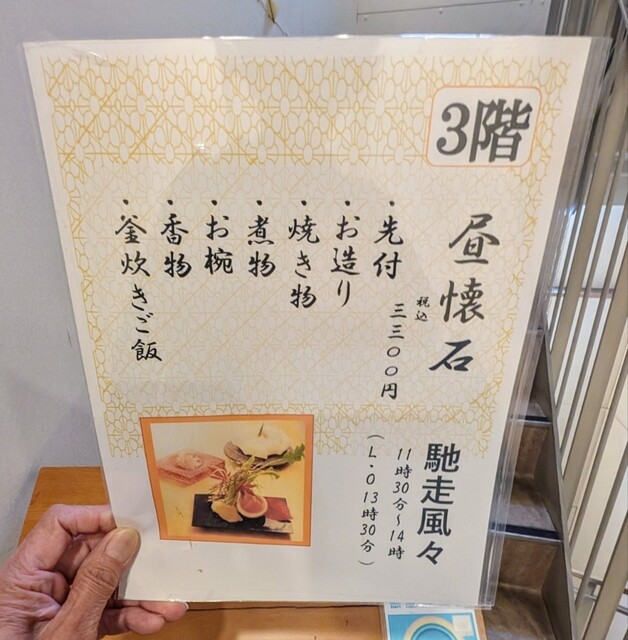 3階
昼懐石
税込
三三〇〇円
・先付
・お造り
・焼き物
・煮物
・お椀
・香物
・釜炊きご飯
馳走風々
11時30分〜14時
（L.O 13時30分）